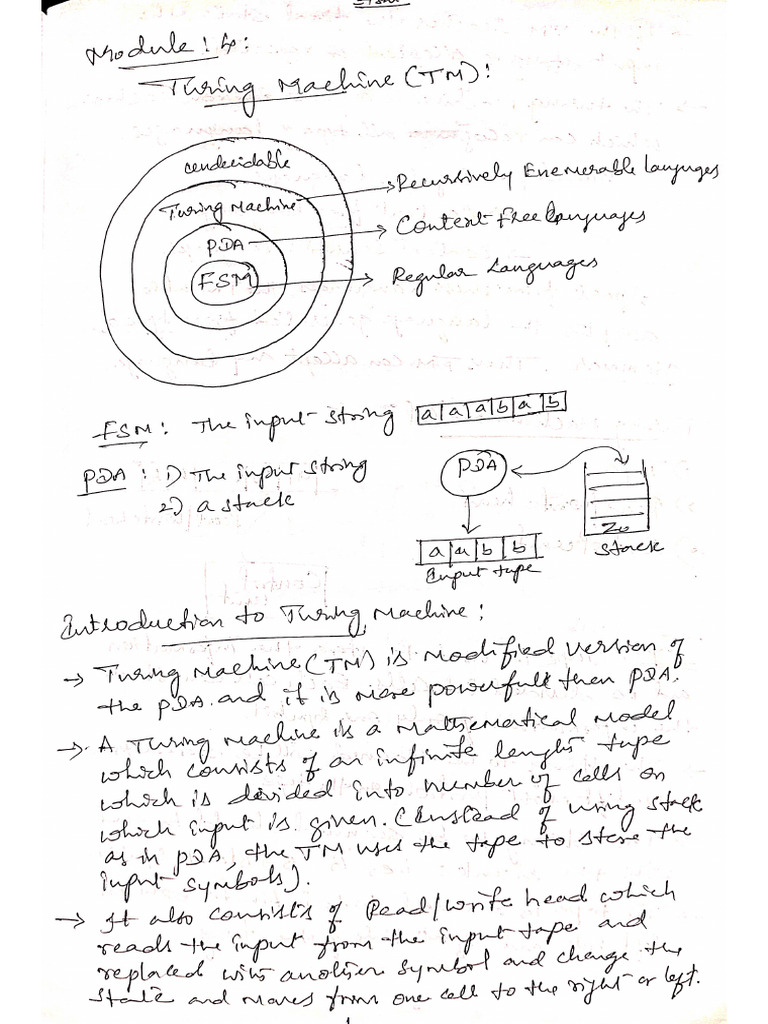 Module: 4:
Turing Machine (TM):
undecidable
Turing Machine
PDA
FSM
Recursively Enemerable Languages
Context free Languages
Regular Languages
FSM: The input string a a a b a b
PDA: 1) The input string
2) a stack
PDA
a a b b
Input tape
Z0
stack
Introduction to Turing Machine:
→ Turing Machine (TM) is Modified version of
the PDA. and it is More powerfull then PDA.
→ A Turing Machine is a Mathematical Model
which consists of an infinite lenght tape
which is devided into number of cells on
which input is given. (Instead of using stack
as in PDA, the TM uses the tape to store the
input symbols).
→ It also consists of Read/write head which
reads the input from the input tape and
replaced with another symbol and change the
state and moves from one cell to the right or left.